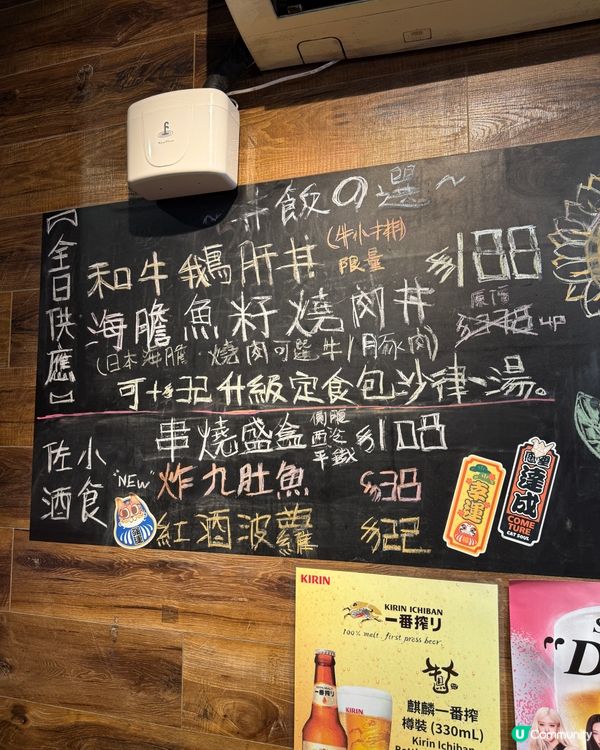 ～丼飯の選～
【全日供應】
和牛鵝肝丼
(牛小丼)
限量
$188
海膽魚籽燒肉丼
原價
(日本海膽・燒肉可選牛/豚肉)
可+$32升級定食包沙律、湯。
佐酒小食
串燒盛盒
$108
"NEW"
炸九肚魚
$38
紅酒波蘿
$22
達成
COME TURE
CAT SOUL
KIRIN
KIRIN ICHIBAN
一番搾り
100% malt. first press beer.
一番搾り
KIRIN
麒麟一番搾
樽裝 (330mL)
Kirin Ichiban
U Community